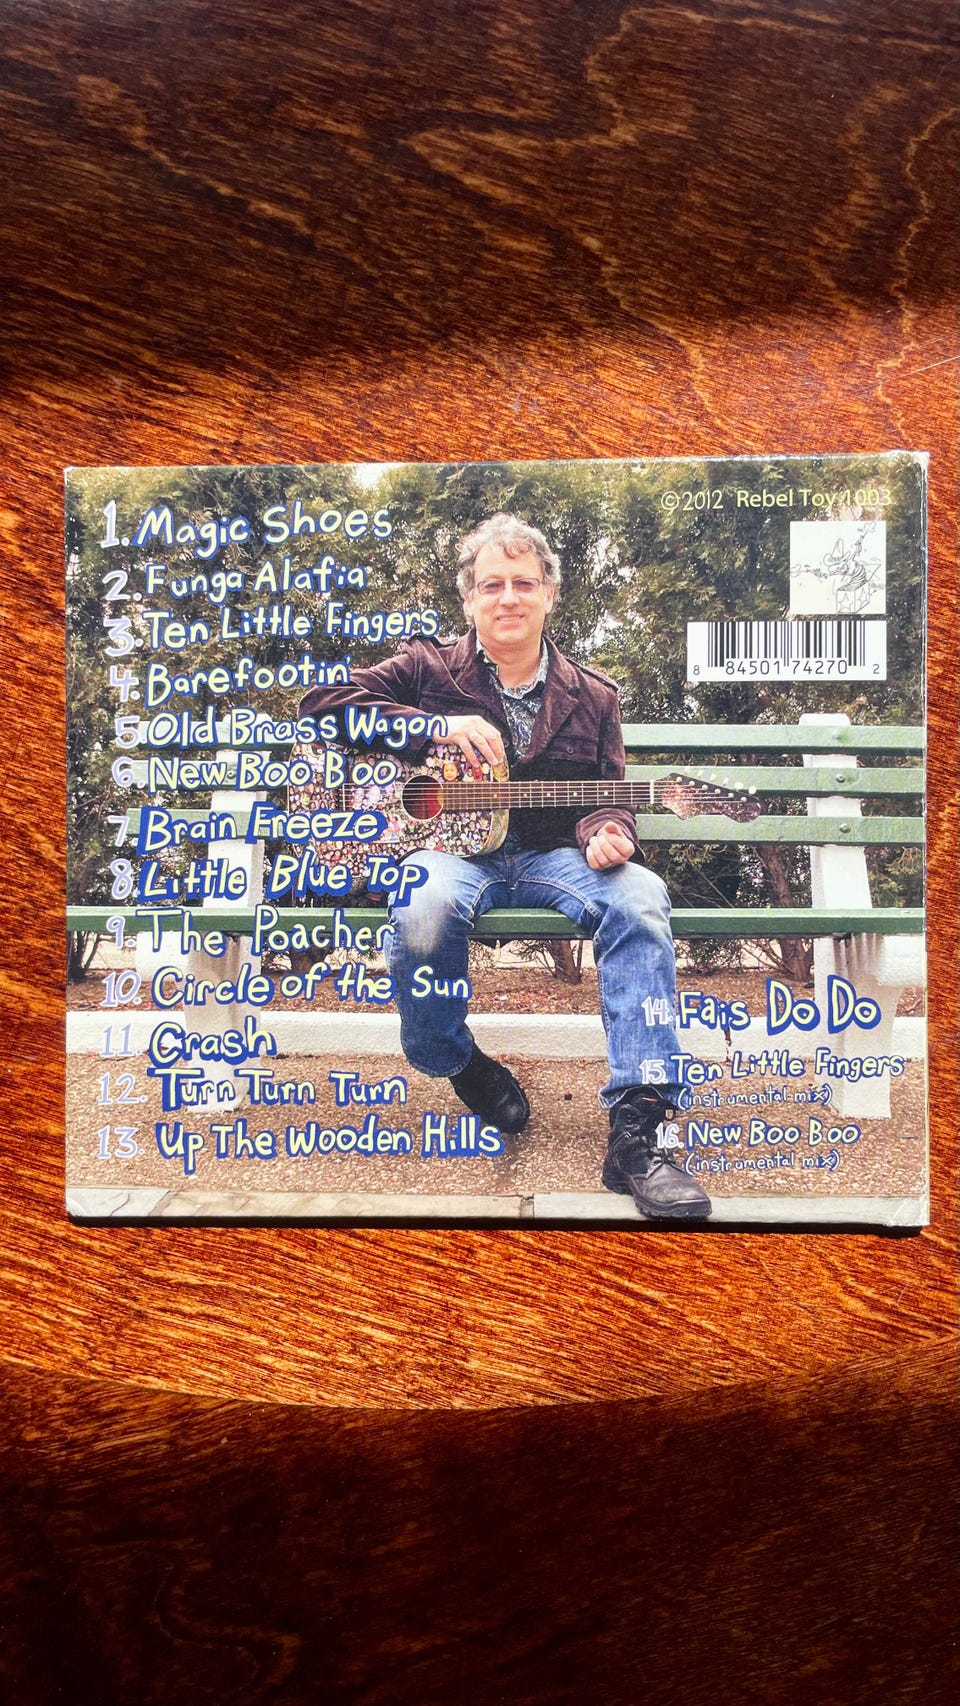 1. Magic Shoes
2. Funga Alafia
3. Ten Little Fingers
4. Barefootin'
5. Old Brass Wagon
6. New Boo Boo
7 Brain Freeze
8. Little Blue Top
9. The Poacher
10. Circle of the Sun
11. Crash
12. Turn Turn Turn
13. Up The Wooden Hills
14. Fais Do Do
15. Ten Little Fingers
(instrumental mix)
16. New Boo Boo
(instrumental mix)
©2012 Rebel Toy 1003
8 84501 74270 2